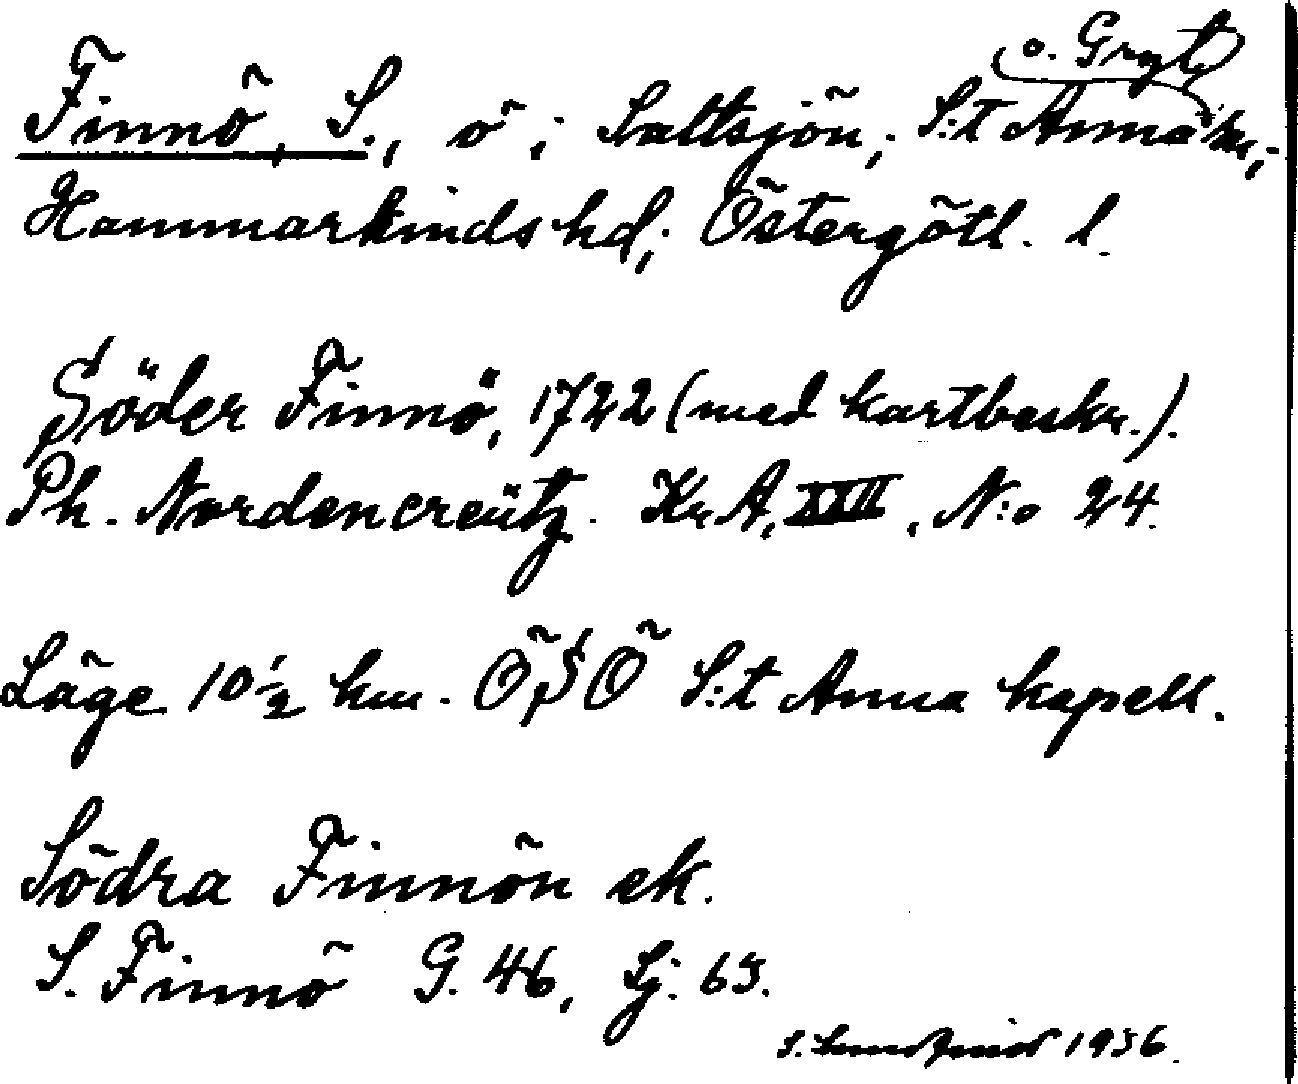 o. Gryt
Finnö, S., ö i Saltsjön, S:t Anna sn,
Hammarkinds hd, Östergötl. l.
Söder Finnö, 1722 (med kartbeskr.).
Ph. Nordencreütz. Kr A, XXII, N:o 24.
Läge 10½ km. ÖSÖ S:t Anna kapell.
Södra Finnön ek.
S. Finnö G. 46, Sj. 65.
S. 1936.